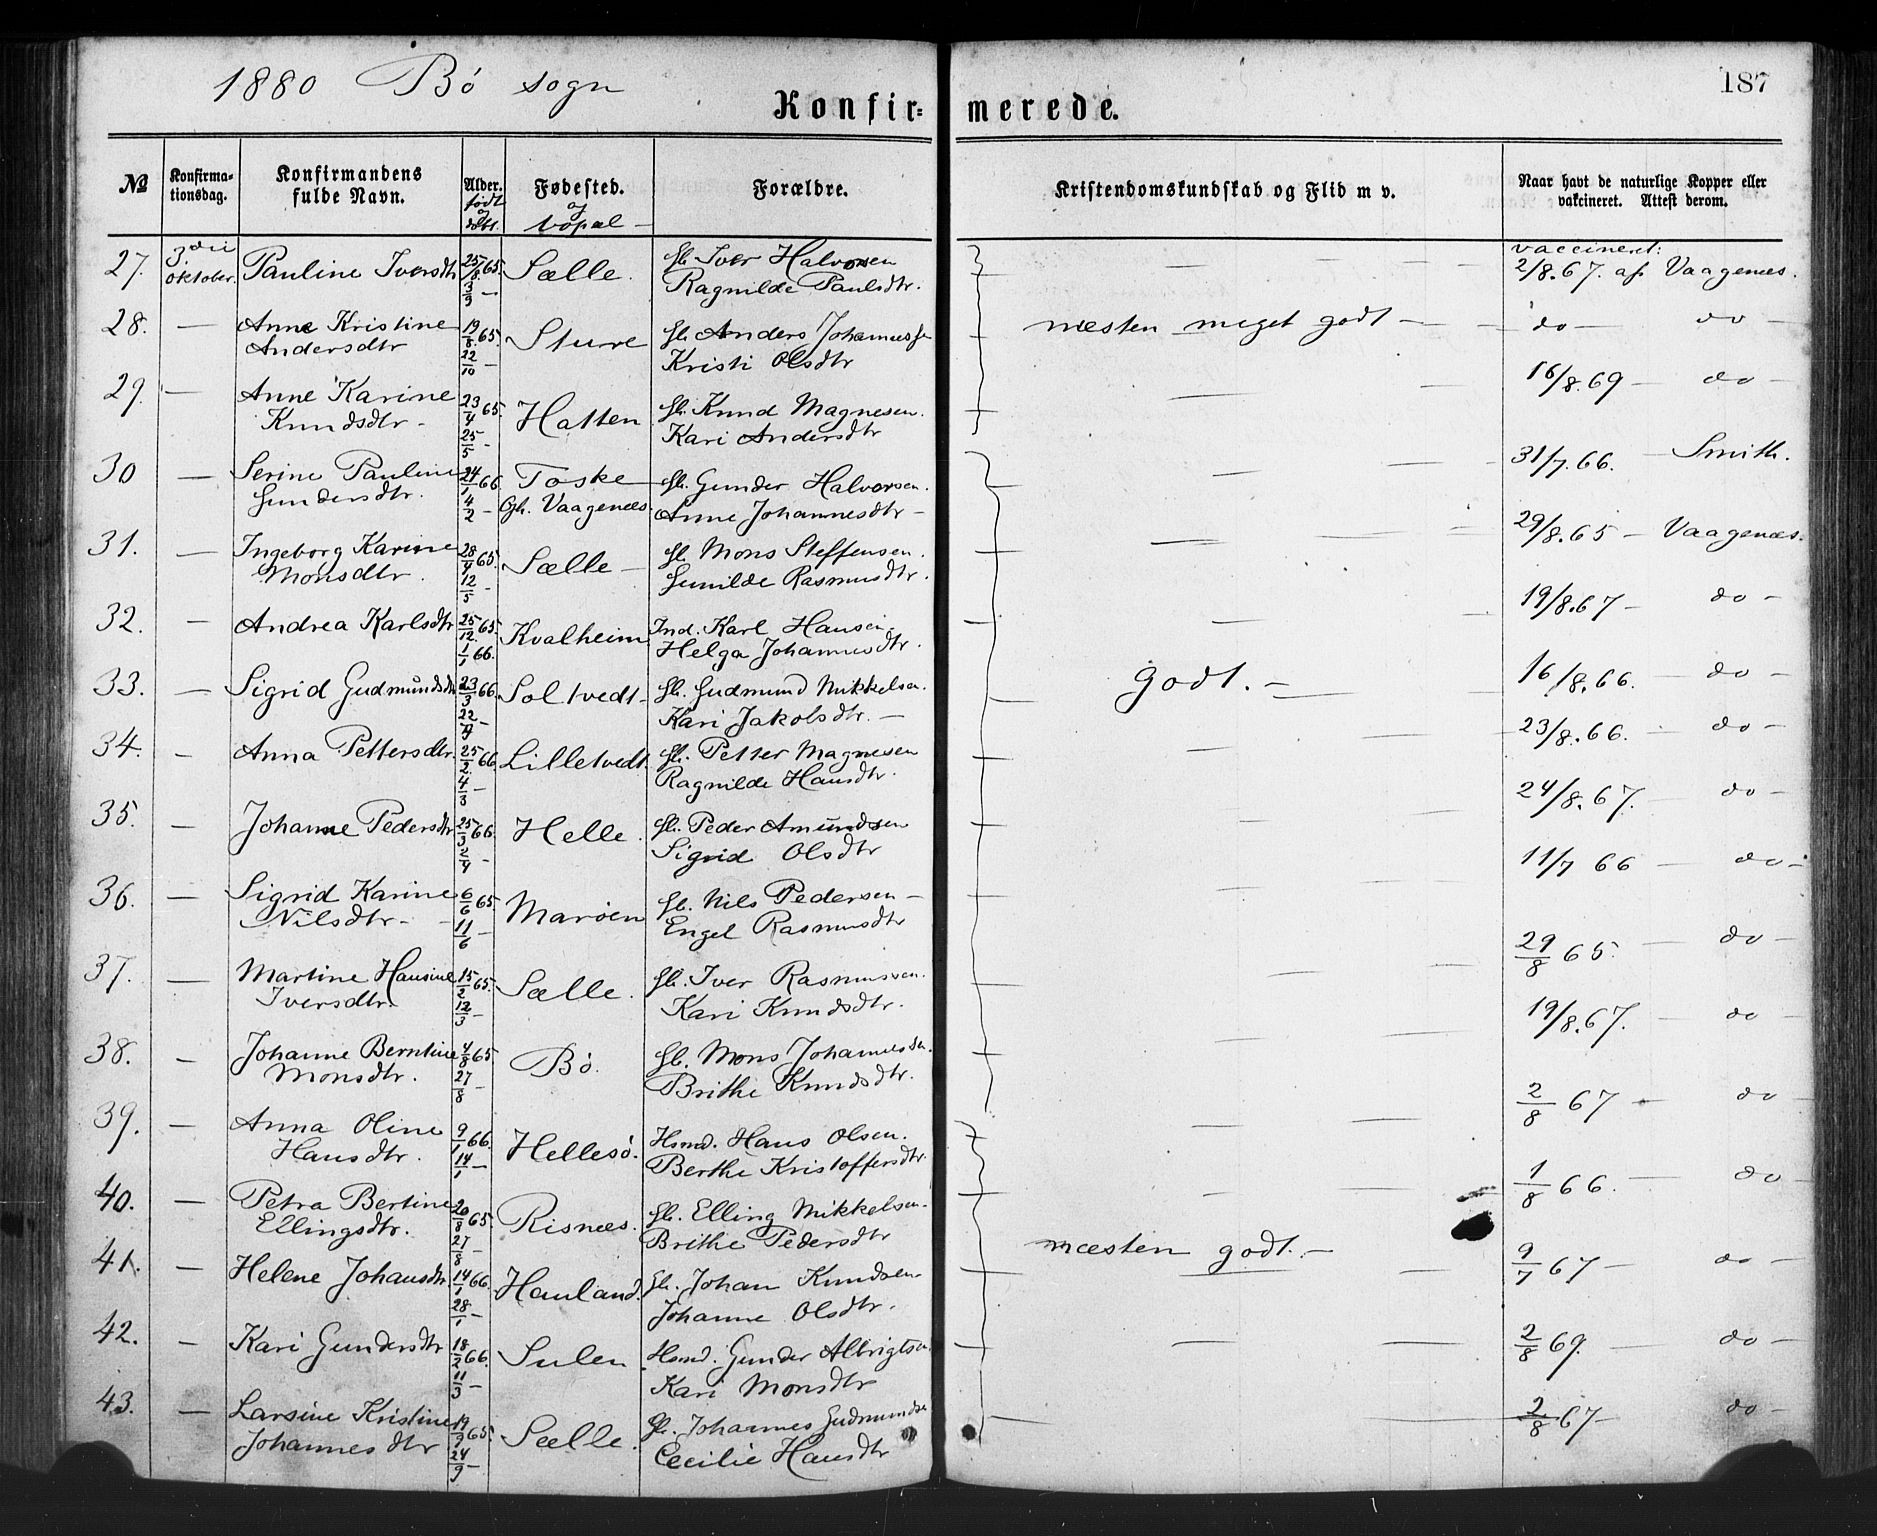 1880 Bø sogn
187
Konfir=merede.
№ Konfirma-tionsdag. Konfirmandens fulde Navn. Alder. født og døbt. Fødested. og bopæl — Forældre. Kristendomskundskab og Flid m v. Naar havt de naturlige Kopper eller vakcineret. Attest derom.
27. 3die oktober. Pauline Iversdtr 25/8 65. 3/9 — Sælle. Gb. Iver Halvorsen Ragnilde Paulsdtr. — — — vaccineret: 2/8.67. af Vaagenæs.
28. — Anne Kristine Andersdtr 19/8 65. 22/10 — Sture Gb. Anders Johanness. Kristi Olsdtr næsten meget godt — — do — do —
29. — Anne Karine Knudsdtr — 23/4 65. 25/5 — Hatten Gb. Knud Magnesen. Kari Andersdtr — — 16/8.69 — do —
30 — Serine Pauline Gundersdtr. 24/1 66 4/2 — Toske Gb. Vaagenæs. Gb. Gunder Halvorsen. Anne Johannesdtr — — — 31/7.66. — Smith.
31. — Ingeborg Karine Monsdtr. 28/4 65. 12/5 — Sælle — Gb. Mons Steffensen. Gunilde Rasmusdtr. — — — 29/8.65 — Vaagenæs.
32. — Andrea Karlsdtr 25/12. 65. 1/1 66. Kvalheim. Ind. Karl Hansen. Helga Johannesdtr. — — 19/8.67 — do —
33. — Sigrid Gudmundsdtr 23/3 66. 22/4 — Soltvedt — Gb. Gudmund Mikkelsen. Kari Jakobsdtr. — godt. — — 16/8.66. — do —
34. — Anna Pettersdtr. 25/2 66. 4/3 — Lilletvedt. Gb. Petter Magnesen Ragnilde Hansdtr. — — 23/8.66. — do —
35. — Johanne Pedersdtr 25/3 66. 2/4 — Helle. Gb. Peder Amundsen Sigrid Olsdtr — — 24/8.67. — do —
36. — Sigrid Karine Nilsdtr — 6/6 65. 11/6 — Marøen Gb. Nils Pedersen — Engel Rasmusdtr — — 11/7 66 — do —
37. — Martine Hansine Iversdtr. 15/2 65. 12/3 — Sælle. Gb. Iver Rasmussen. Kari Knudsdtr. — — 29/8 65. — do —
38. — Johanne Berntine Monsdtr. 4/8 65 27/8 — Bø. Gb. Mons Johannessen. Brithe Knudsdtr. — — 19/8.67. — do —
39. — Anna Oline Hansdtr. 9/1 66. 14/1 — Hellesø. Hsmd. Hans Olsen. Berthe Kristoffersdtr. — — 2/8 67 — do —
40. — Petra Bertine Ellingsdtr. 20/8 65. 27/8 — Risnæs. Gb. Elling Mikkelsen. Brithe Pedersdtr — — 1/8 66. — do —
41. — Helene Johansdtr. 14/1 66. 28/1 — Hauland. Gb. Johan Knudsen Johanne Olsdtr. næsten godt. — — 9/7 67 — do —
42. — Kari Gundersdtr 18/2 66. 11/3 — Sulen Hsmd. Gunder Albrigtsen. Kari Monsdtr — — 2/8 69. — do —
43. — Larsine Kristine Johannesdtr 65. 24/9 — Sælle. Gb. Johannes Gudmundsen Cecilie Hansdtr — 2/8 67 — do —